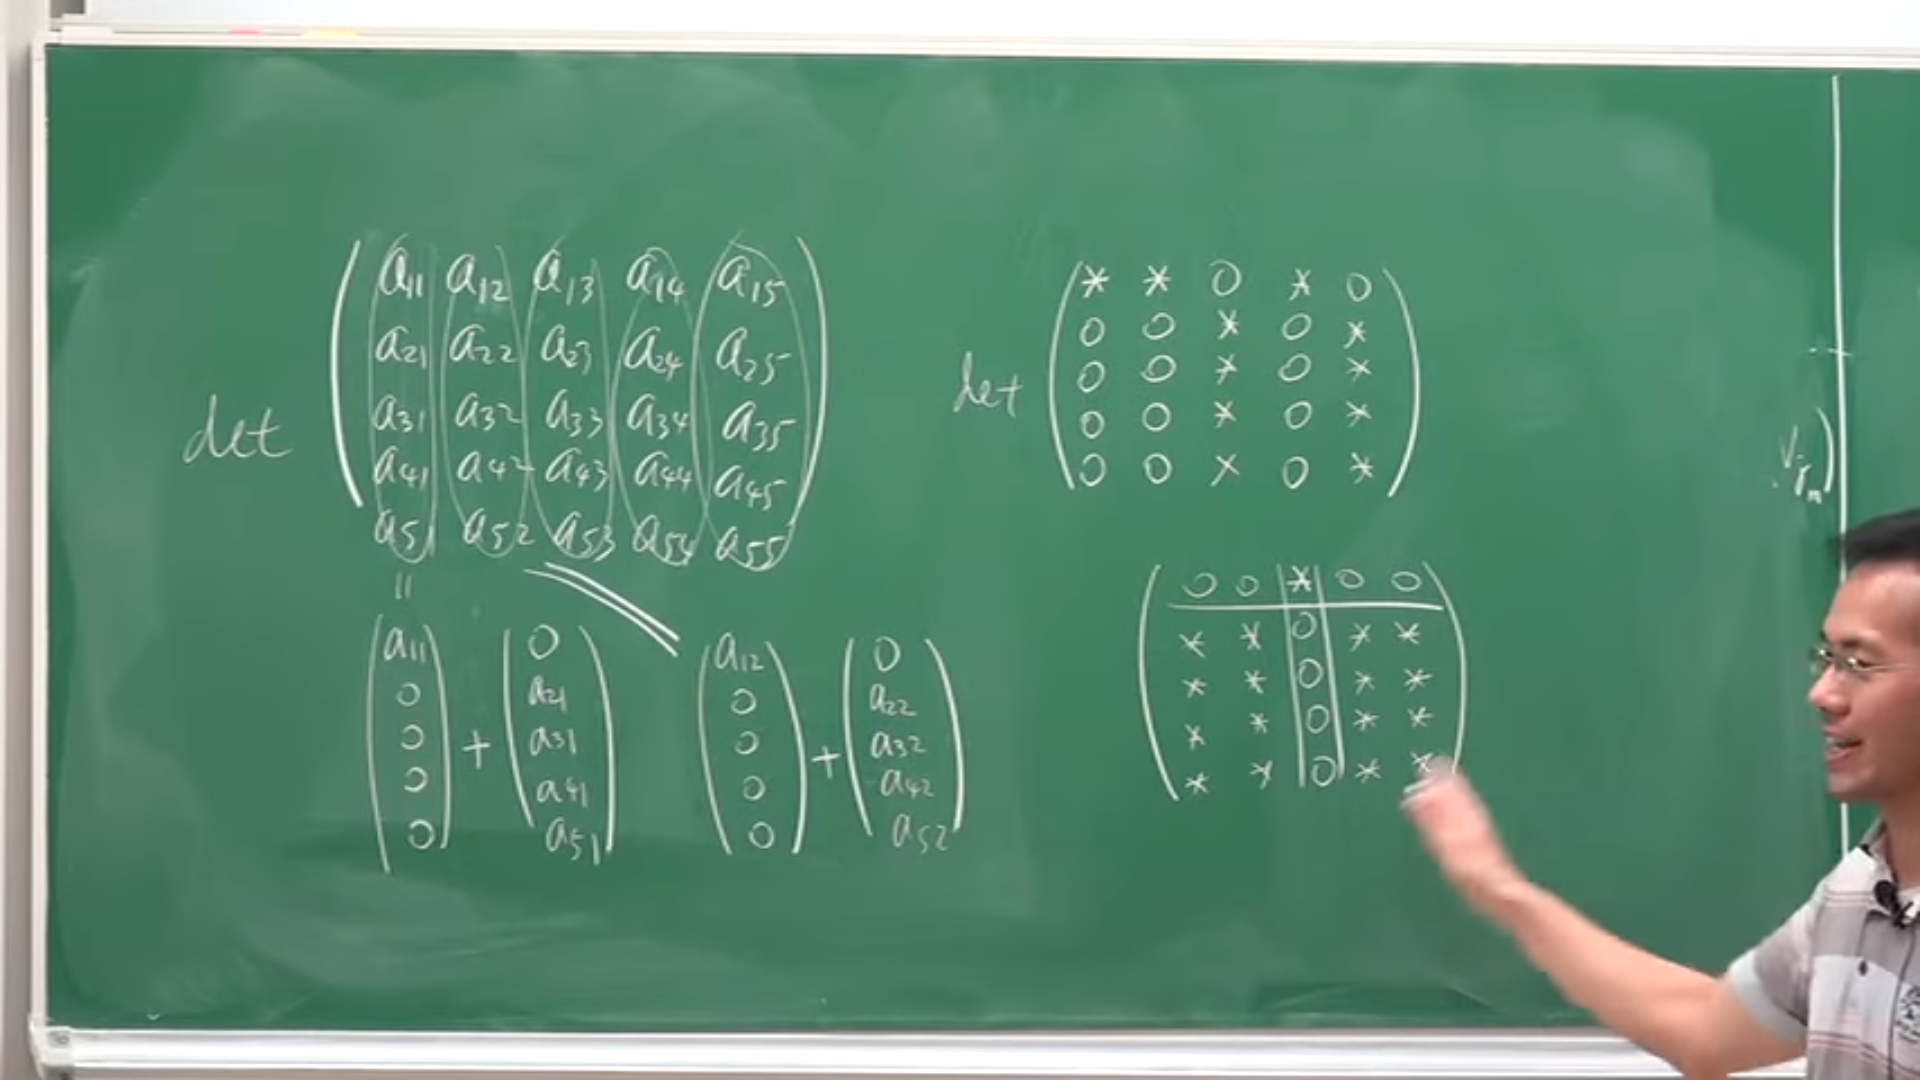 det ( a11 a12 a13 a14 a15
a21 a22 a23 a24 a25
a31 a32 a33 a34 a35
a41 a42 a43 a44 a45
a51 a52 a53 a54 a55 )
=
( a11 0 0 0 0 ) + ( 0 a21 a31 a41 a51 )
( a12 0 0 0 0 ) + ( 0 a22 a32 a42 a52 )
det ( * * 0 * 0
0 0 * 0 *
0 0 * 0 *
0 0 * 0 *
0 0 * 0 * )
( 0 0 * 0 0
* * 0 * *
* * 0 * *
* * 0 * *
* * 0 * * )